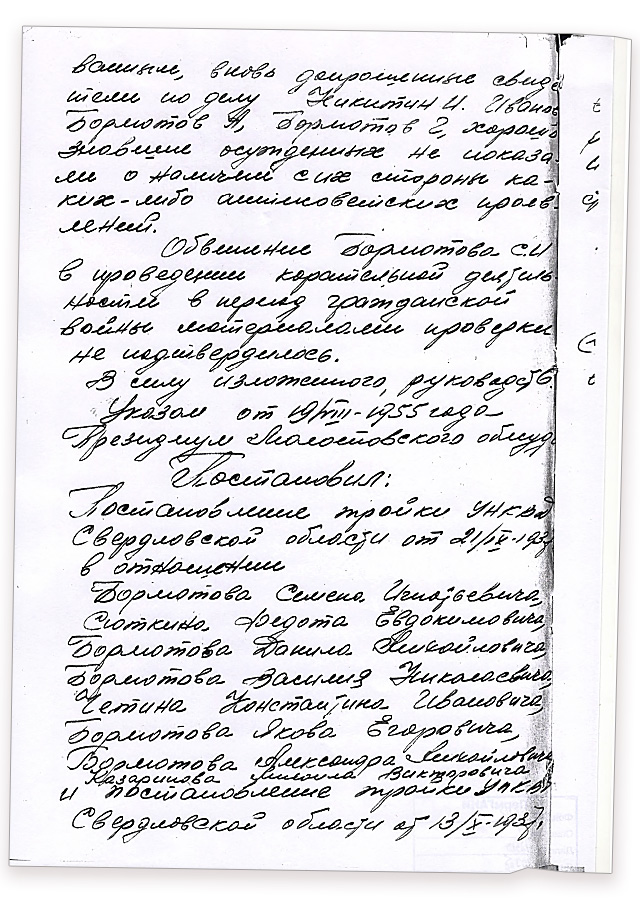 ванным, вновь допрошенные свиде
тели по делу Никитин И. Иванов
Бормотов А, Бормотов Г, хорошо
знавшие осужденных не показа-
ли о наличии с их стороны ка-
ких-либо антисоветских прояв-
лений.
Обвинение Бормотова С.И
в проведении карательной деятель
ности в период гражданской
войны материалами проверки
не подтвердилось.
В силу изложенного, руководств.
Указом от 19/VIII-1955 года
Президиум Молотовского облсуда
Постановил:
Постановление тройки УНКВД
Свердловской области от 21/IX-1937
в отношении
Бормотова Семена Игнатьевича,
Сюткина Федота Евдокимовича,
Бормотова Данила Михайловича,
Бормотова Василия Николаевича,
Четина Константина Ивановича,
Бормотова Якова Егоровича,
Бормотова Александра Михайловича
Казаринова Михаила Викторовича
и постановление тройки УНКВД
Свердловской области от 13/X-1937.